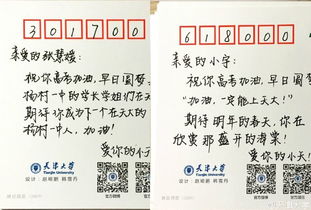 301700
亲爱的张慧媛:
祝你高考加油,早日圆梦
杨村一中的学长学姐们在天
期待你成为下一个在天大的
杨村一中人,加油!
爱你的小天
天津大学
Tianjin University
618000
亲爱的小宇:
祝你高考加油,早日圆
“加油,一定能上天大!”
期待明年的春天,你在
欣赏那盛开的海棠!
爱你的小天
天津大学
Tianjin University